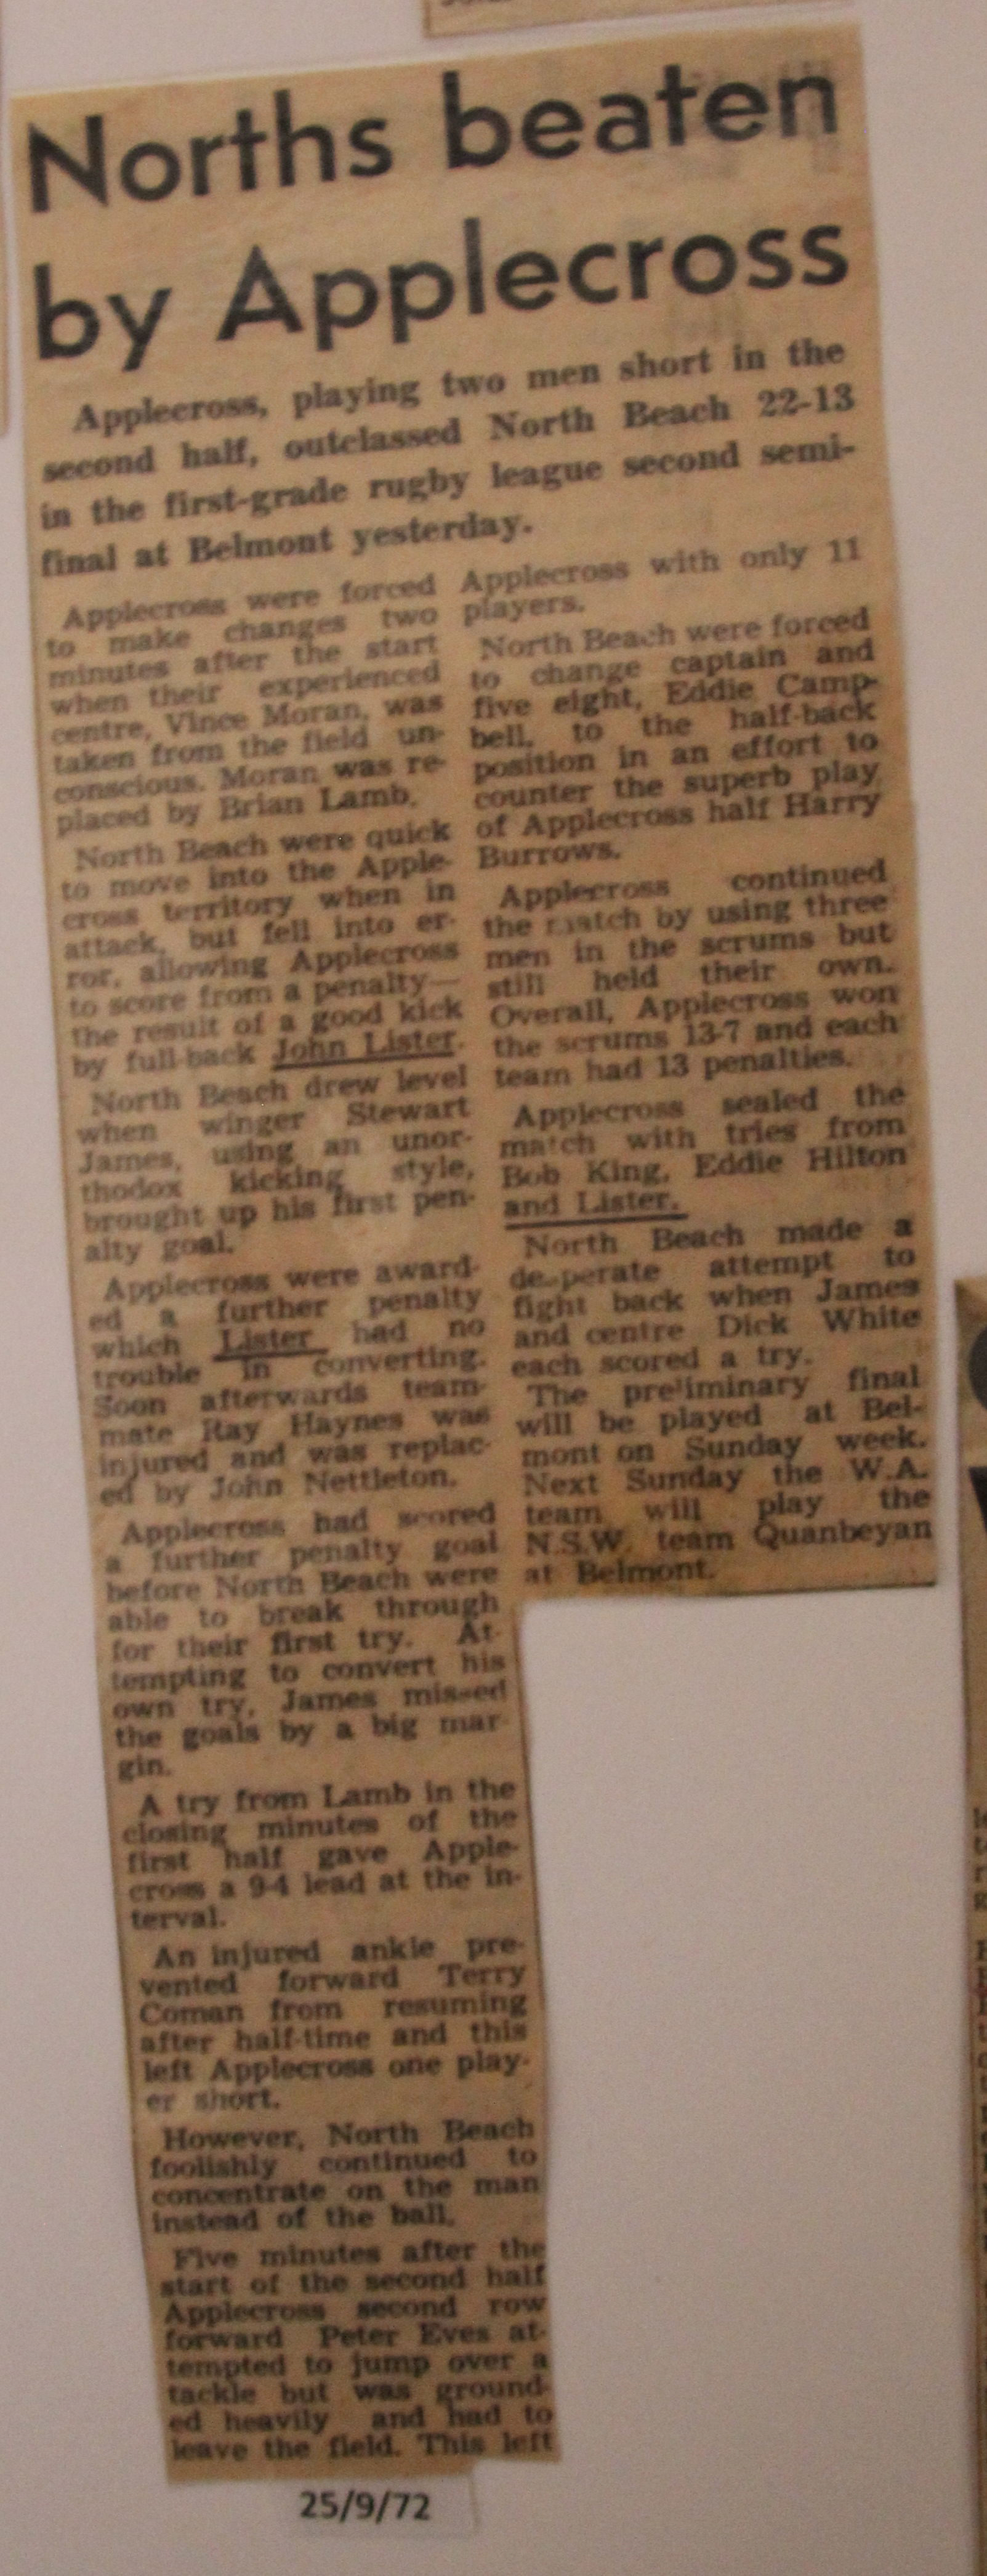 Norths beaten
by Applecross
Applecross, playing two men short in the
second half, outclassed North Beach 22-13
in the first-grade rugby league second semi-
final at Belmont yesterday.
Applecross were forced
to make changes two
minutes after the start
when their experienced
centre, Vince Moran, was
taken from the field un-
conscious. Moran was re-
placed by Brian Lamb.
North Beach were quick
to move into the Apple-
cross territory when in
attack, but fell into er-
ror, allowing Applecross
to score from a penalty—
the result of a good kick
by full-back John Lister.
North Beach drew level
when winger Stewart
James, using an unor-
thodox kicking style,
brought up his first pen-
alty goal.
Applecross were award-
ed a further penalty
which Lister had no
trouble in converting.
Soon afterwards team-
mate Ray Haynes was
injured and was replac-
ed by John Nettleton.
Applecross had scored
a further penalty goal
before North Beach were
able to break through
for their first try. At-
tempting to convert his
own try, James missed
the goals by a big mar-
gin.
A try from Lamb in the
closing minutes of the
first half gave Apple-
cross a 9-4 lead at the in-
terval.
An injured ankle pre-
vented forward Terry
Coman from resuming
after half-time and this
left Applecross one play-
er short.
However, North Beach
foolishly continued to
concentrate on the man
instead of the ball.
Five minutes after the
start of the second half
Applecross second row
forward Peter Eves at-
tempted to jump over a
tackle but was ground-
ed heavily and had to
leave the field. This left
Applecross with only 11
players.
North Beach were forced
to change captain and
five eight, Eddie Camp-
bell, to the half-back
position in an effort to
counter the superb play
of Applecross half Harry
Burrows.
Applecross continued
the match by using three
men in the scrums but
still held their own.
Overall, Applecross won
the scrums 13-7 and each
team had 13 penalties.
Applecross sealed the
match with tries from
Bob King, Eddie Hilton
and Lister.
North Beach made a
desperate attempt to
fight back when James
and centre Dick White
each scored a try.
The preliminary final
will be played at Bel-
mont on Sunday week.
Next Sunday the W.A.
team will play the
N.S.W. team Quanbeyan
at Belmont.
25/9/72